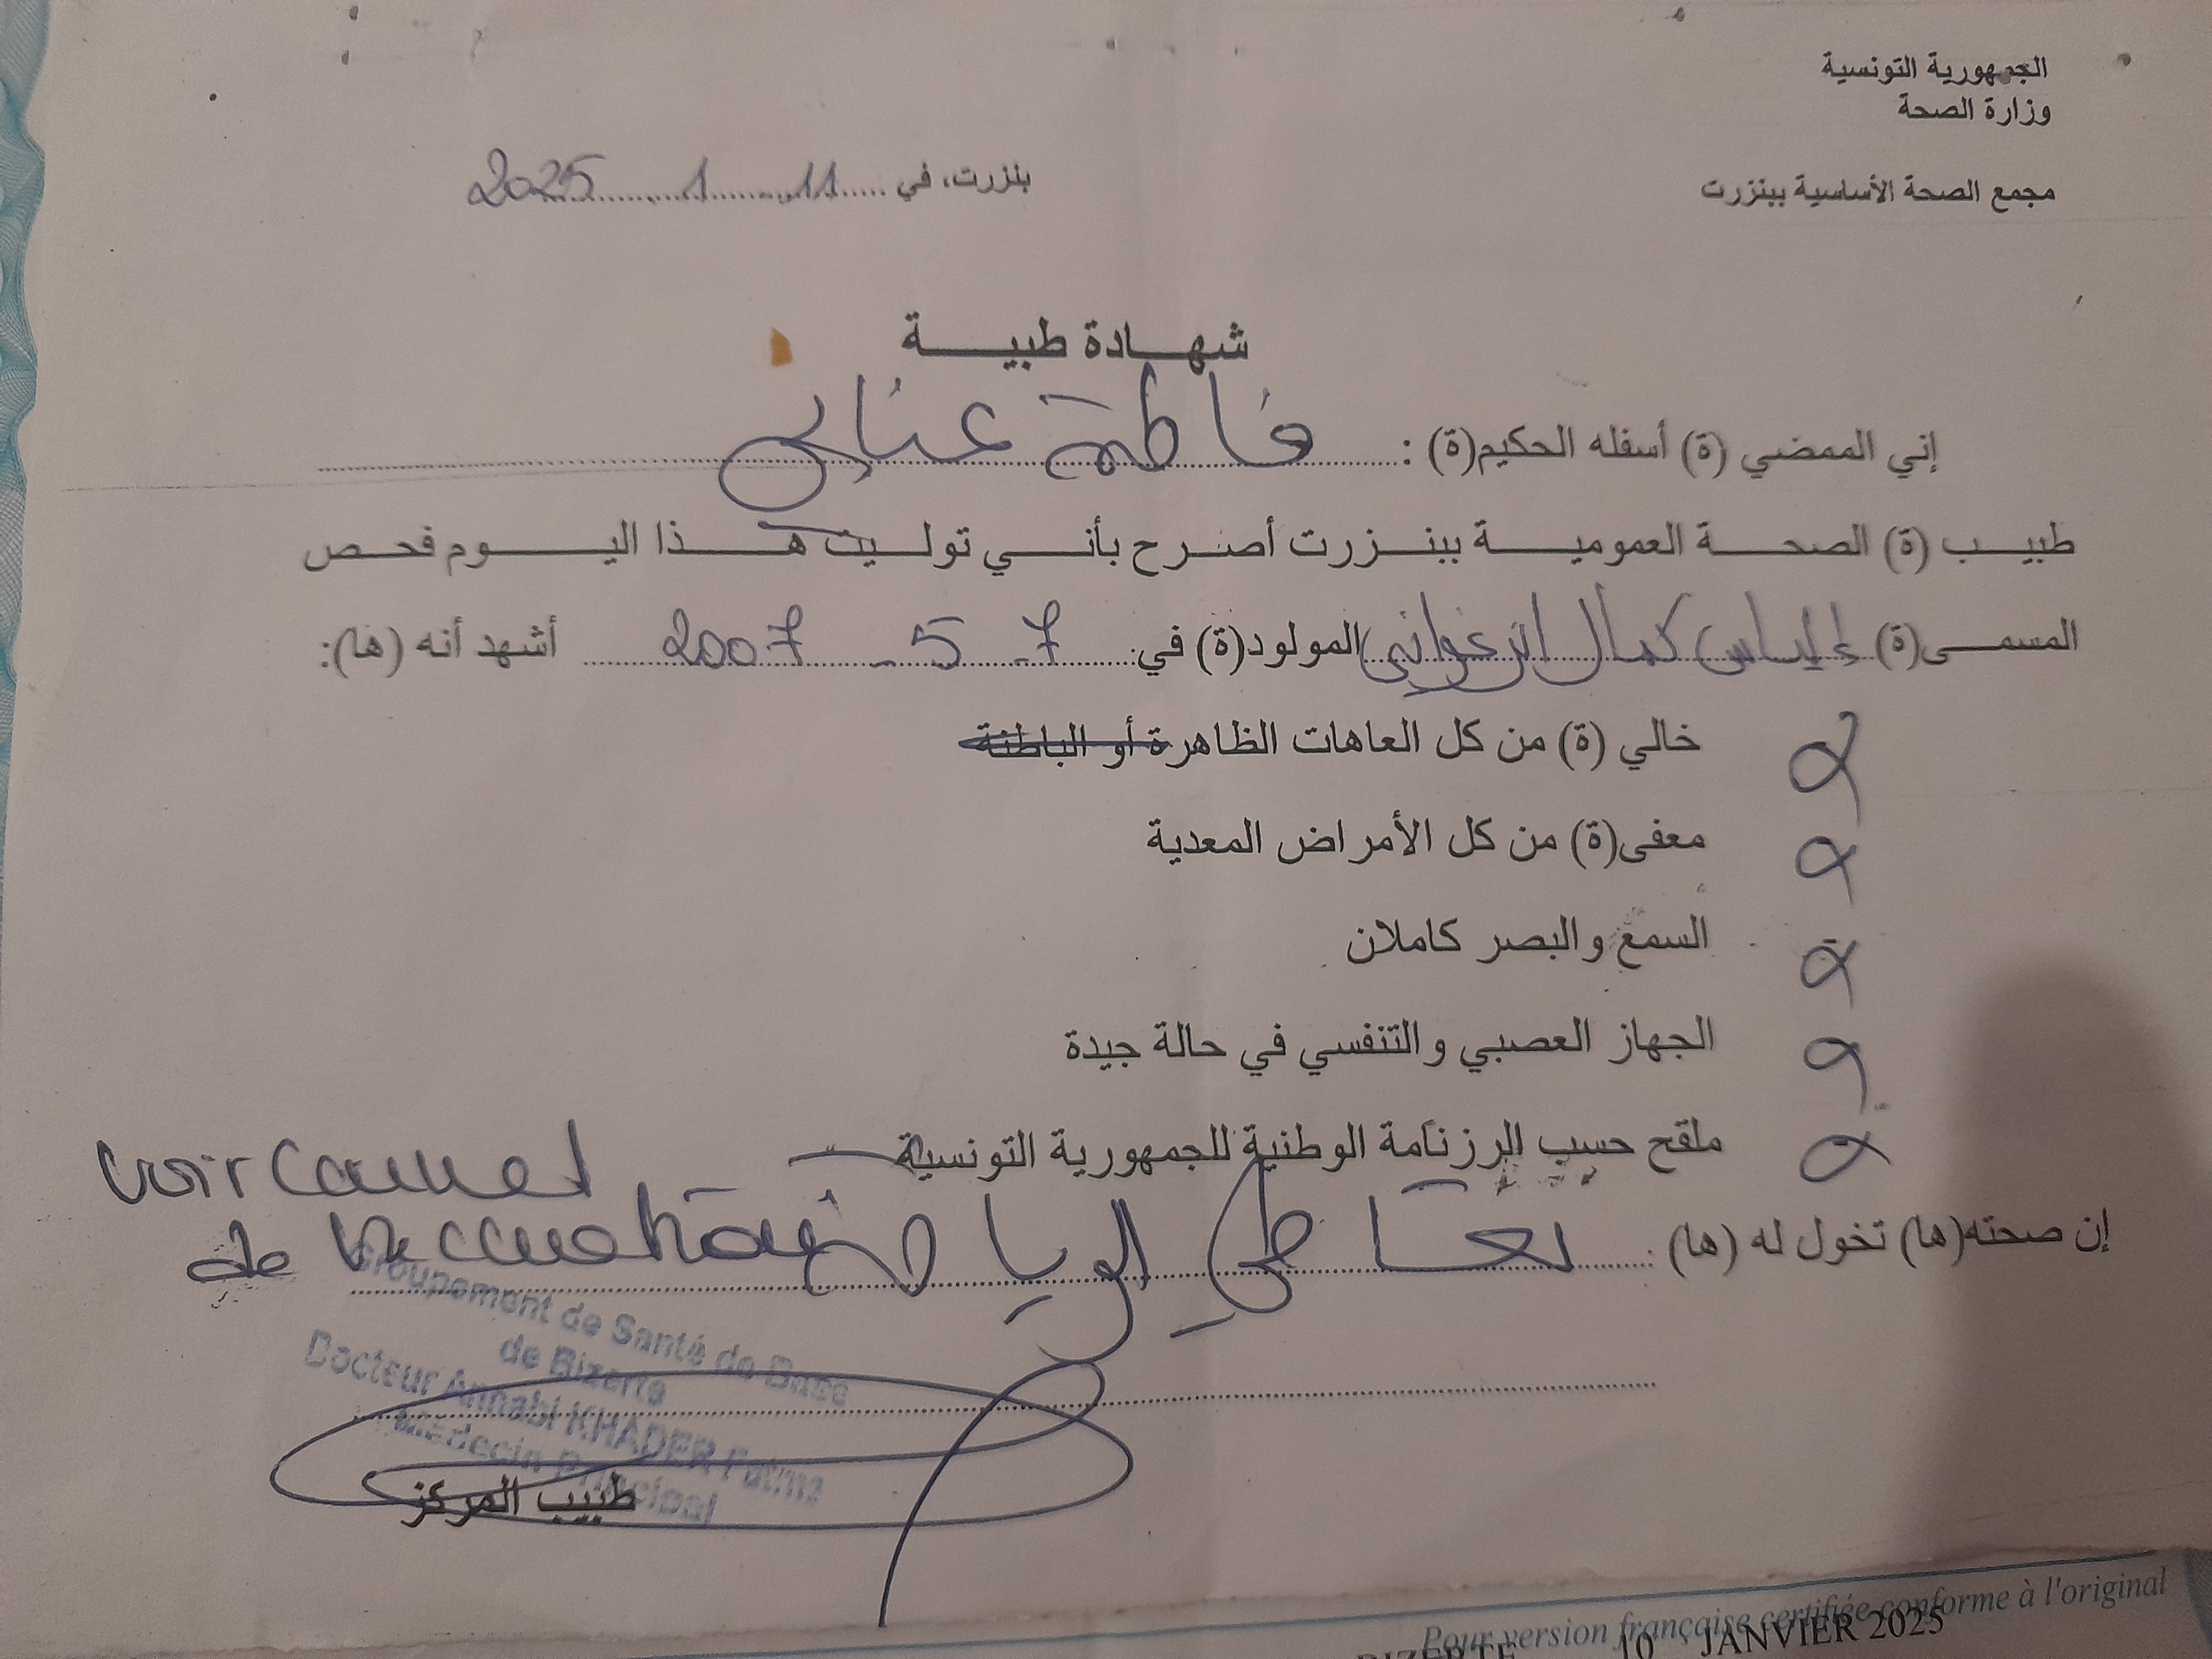 الجمهورية التونسية
وزارة الصحة
مجمع الصحة الأساسية ببنزرت
بنزرت، في 11 1 2025
شهادة طبية
إني الممضي (ة) أسفله الحكيم(ة) : فاطمة عنابي
طبيب (ة) الصحة العمومية ببنزرت أصرح بأني توليت هذا اليوم فحص
المسمى(ة) إلياس كمال الزغواني المولود(ة) في: 7 - 5 - 2007 أشهد أنه (ها):
خالي (ة) من كل العاهات الظاهرة أو الباطنة
معفى(ة) من كل الأمراض المعدية
السمع والبصر كاملان
الجهاز العصبي والتنفسي في حالة جيدة
ملقح حسب الرزنامة الوطنية للجمهورية التونسية
voir carnet
de vaccination
إن صحته(ها) تخول له (ها) : تعاطي الرياضة
Groupement de Santé de Base
de Bizerte
Docteur Annabi KHADER Fatma
Médecin Principal
طبيب المركز
Pour version française certifiée conforme à l'original
BIZERTE 10 JANVIER 2025